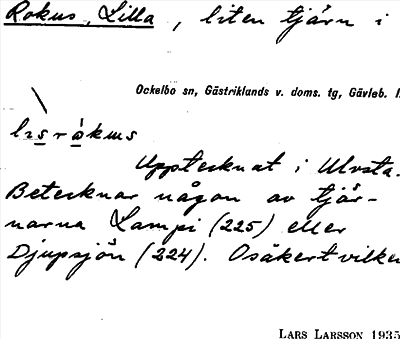 Rokus, Lilla, liten tjärn i
Ockelbo sn, Gästriklands v. doms. tg, Gävleb. l
Upptecknat i Ulvsta.
Betecknar någon av tjär-
narna Lampi (225) eller
Djupsjön (224). Osäkert vilke
LARS LARSSON 1935